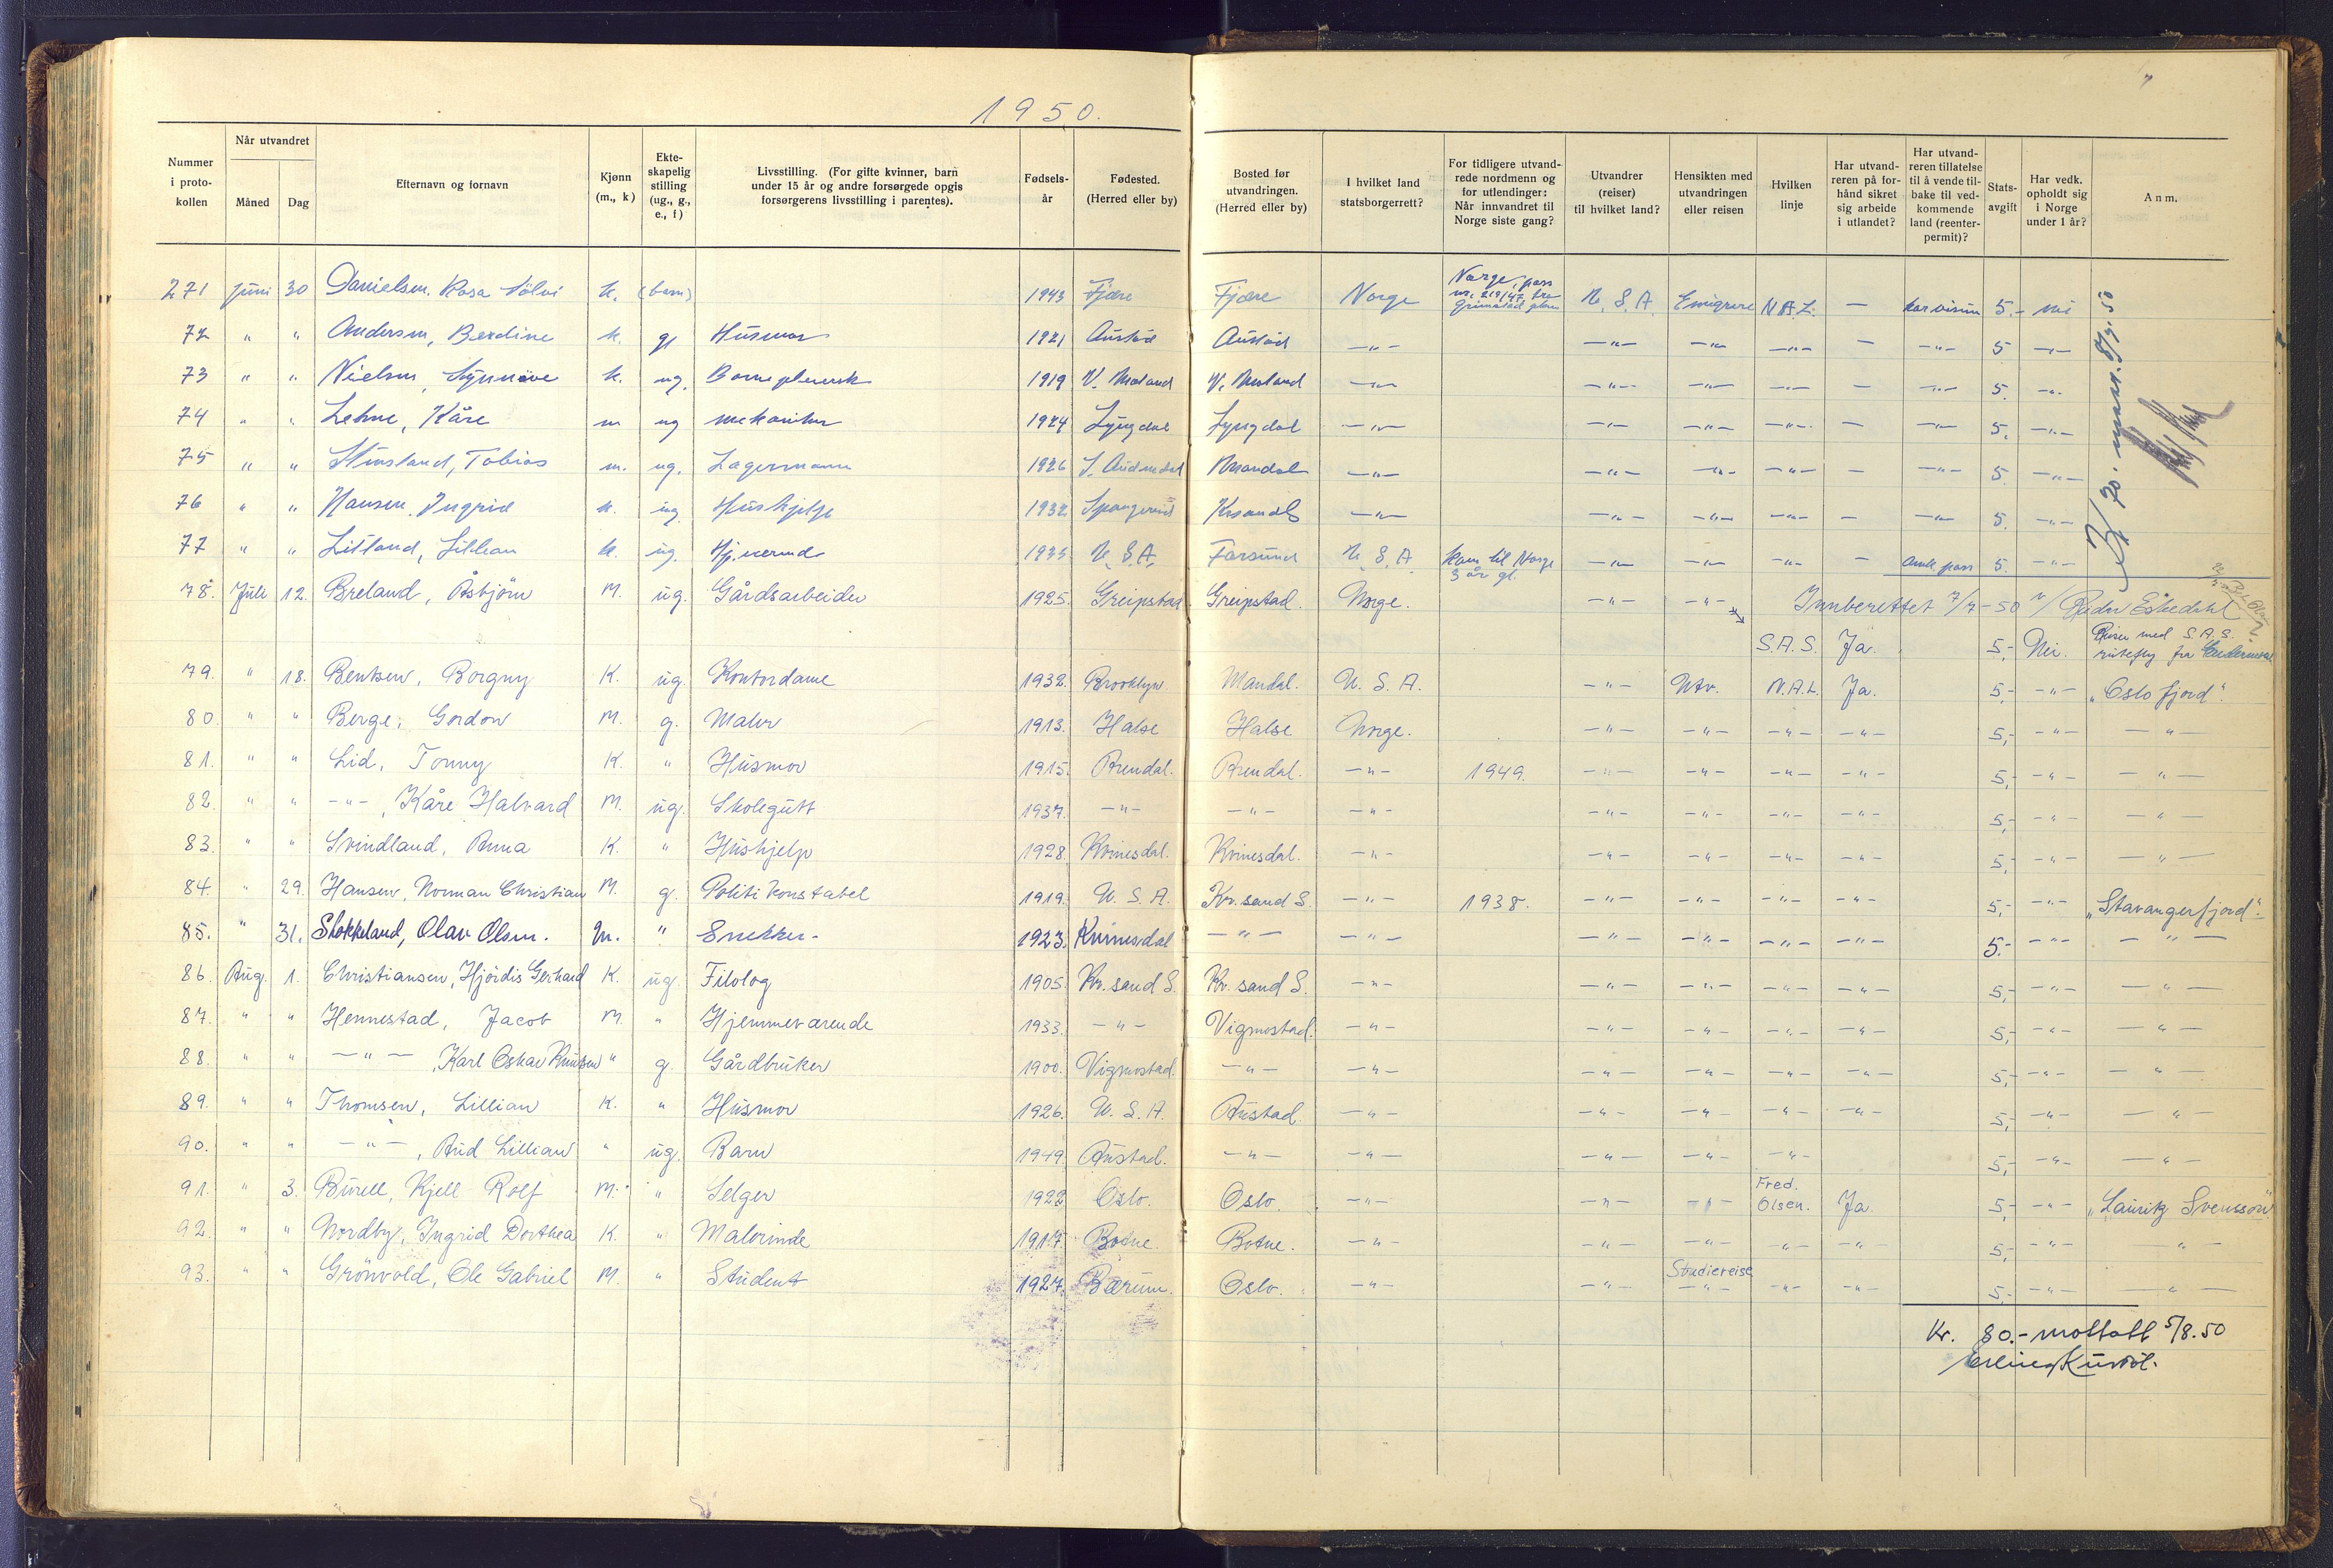 1950.
Nummer i proto-kollen | Når utvandret Måned Dag | Efternavn og fornavn | Kjønn (m., k) | Ekte-skapelig stilling (ug., g., e., f) | Livsstilling. (For gifte kvinner, barn under 15 år og andre forsørgede opgis forsørgerens livsstilling i parentes). | Fødsels-år | Fødested. (Herred eller by) | Bosted før utvandringen. (Herred eller by) | I hvilket land statsborgerrett? | For tidligere utvand-rede nordmenn og for utlendinger: Når innvandret til Norge siste gang? | Utvandrer (reiser) til hvilket land? | Hensikten med utvandringen eller reisen | Hvilken linje | Har utvand-reren på for-hånd sikret sig arbeide i utlandet? | Har utvand-reren tillatelse til å vende til-bake til ved-kommende land (reenter-permit)? | Stats-avgift | Har vedk. opholdt sig i Norge under 1 år? | Anm.
271 juni 30 Danielsen, Rosa Sölvi k. (barn) 1943 Fjære Fjære Norge Norge, pass nr. 219/47 fra Grimstad U.S.A. Emigrere N.A.L. — har visum 5.- nei
72 " " Andersen, Berdine k. g Husmor 1921 Austad Austad —"— —"— —"— —"— — —"— 5 —"—
73 " " Nielsen, Synnöve k. ug. Barnepleiersk 1919 V. Moland V. Moland —"— —"— —"— —"— — —"— 5. —"—
74 " " Lehne, Kåre m ug mekaniker 1924 Lyngdal Lyngdal —"— —"— —"— —"— — —"— 5. —"—
75 " " Stusland, Tobias m. ug. Lagermann 1926 S. Audnedal Mandal —"— —"— —"— —"— — —"— 5. —"—
76 " " Hansen, Ingrid k. ug. Hushjelp 1932 Spangereid Krsand S —"— —"— —"— —"— — —"— 5. —"—
77 " " Litland, Lillian k. ug. Hj.værende 1935 U.S.A. Farsund U.S.A. kom til Norge 3 år gl. —"— —"— —"— — Amk. pass 5. —"—
78. Juli 12. Breland, Åsbjörn M. ug. Gårdsarbeider 1925. Greipstad Greipstad. Norge. —"— —"— Innberettet 7/7-50
S.A.S. Ja. 5,- Nei. Reiser med S.A.S. rutefly fra
79. " 18. Bentsen, Borgny K. ug. Kontordame 1932. Brooklyn. Mandal. U.S.A. —"— Utv. N.A.L. Ja. 5,- —"— "Oslofjord".
80. " " Berge, Gordon M. g. Maler 1913. Halse Halse Norge. —"— —"— —"— —"— 5,- —"— —"—
81. " " Lid, Tonny K. " Husmor 1915. Arendal. Arendal. —"— 1949. —"— —"— —"— —"— 5,- —"— —"—
82. " " —"—, Kåre Halvard M. ug. Skolegutt 1937. —"— —"— —"— —"— —"— —"— —"— 5,- —"— —"—
83. " " Svindland, Anna K. " Hushjelp 1928. Kvinesdal. Kvinesdal. —"— —"— —"— —"— —"— 5,- —"— —"—
84. " 29. Hansen, Norman Christian M. g. Politikonstabel 1919. U.S.A. Kr.sand S. —"— 1938. —"— —"— —"— —"— 5,- —"— "Stavangerfjord".
85. " 31. Stokkeland, Olav Olsen. m. " Snekker. 1923. Kvinesdal —"— —"— —"— —"— —"— —"— 5.- —"— —"—
86. Aug. 1. Christiansen, Hjördis Gerhard K. ug. Filolog 1905. Kr.sand S. Kr.sand S. —"— —"— —"— —"— —"— 5,- —"— —"—
87. " " Hennestad, Jacob M. " Hjemmeværende 1933. —"— Vigmostad. —"— —"— —"— —"— —"— 5,- —"— —"—
88. " " —"—, Karl Oskar Knutsen " g. Gårdbruker 1900. Vigmostad. —"— —"— —"— —"— —"— —"— 5,- —"— —"—
89. " " Thomsen, Lillian K. " Husmor 1926. U.S.A. Austad. —"— —"— —"— —"— —"— 5,- —"— —"—
90. " " —"—, Aud Lillian " ug. Barn 1949. Austad. —"— —"— —"— —"— —"— 5,- —"— —"—
91. " 3. Burell, Kjell Rolf M. " Selger 1922 Oslo. Oslo. —"— —"— —"— Fred. Olsen. Ja. 5,- —"— "Lauritz Svensson"
92. " " Nordby, Ingrid Dorthea K. " Malerinde 1917. Botne. Botne. —"— —"— —"— —"— —"— 5,- —"— "—
93. " " Grönvold, Ole Gabriel M. " Student 1927. Bærum. Oslo. —"— —"— Studiereise —"— —"— —"— 5,- —"— —"—
Kr. 80.- mottatt 5/8.50